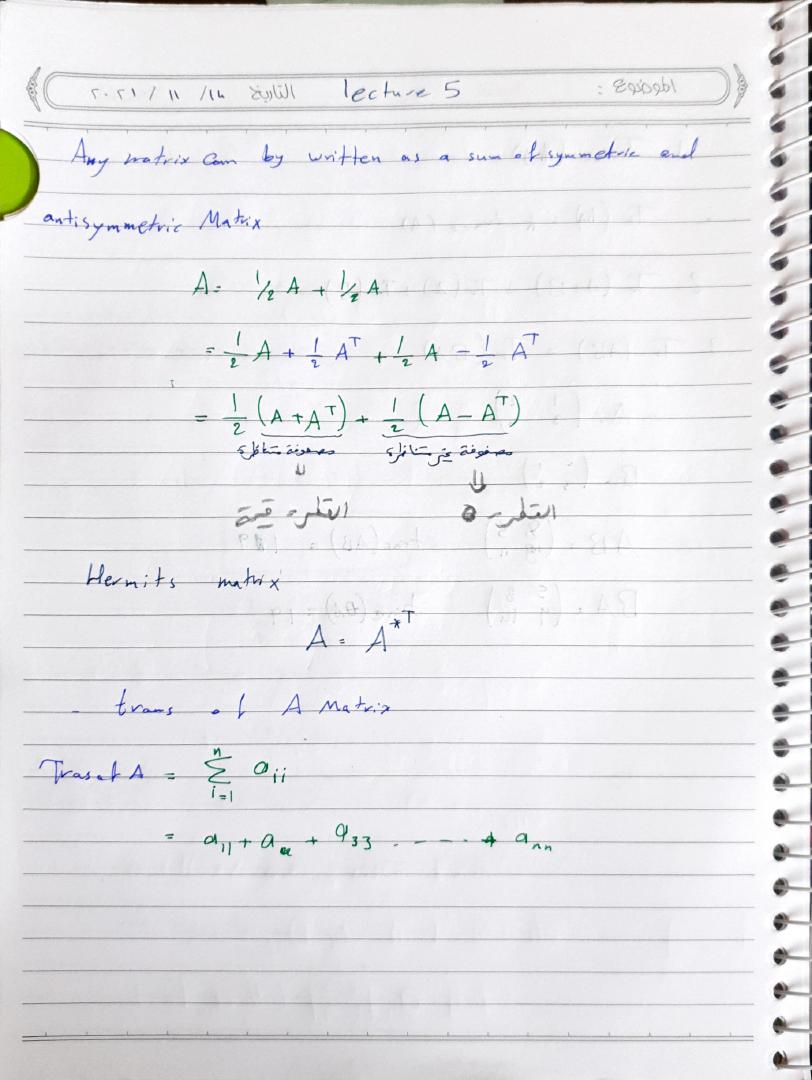 الموضوع : lecture 5 التاريخ ١٤/ ١١ / ٢٠٢١
Any matrix Can by written as a sum of symmetric and
antisymmetric Matrix
A = 1/2 A + 1/2 A
= 1/2 A + 1/2 A^T + 1/2 A - 1/2 A^T
= 1/2 (A + A^T) + 1/2 (A - A^T)
مصفوفة متناظرة مصفوفة غير متناظرة
⇓ ⇓
القطر
Hermits matrix
A = A^*T
- trans of A Matrix
Tras of A = Σ_{i=1}^{n} a_ii
= a_11 + a_22 + a_33 . - - - - + a_nn